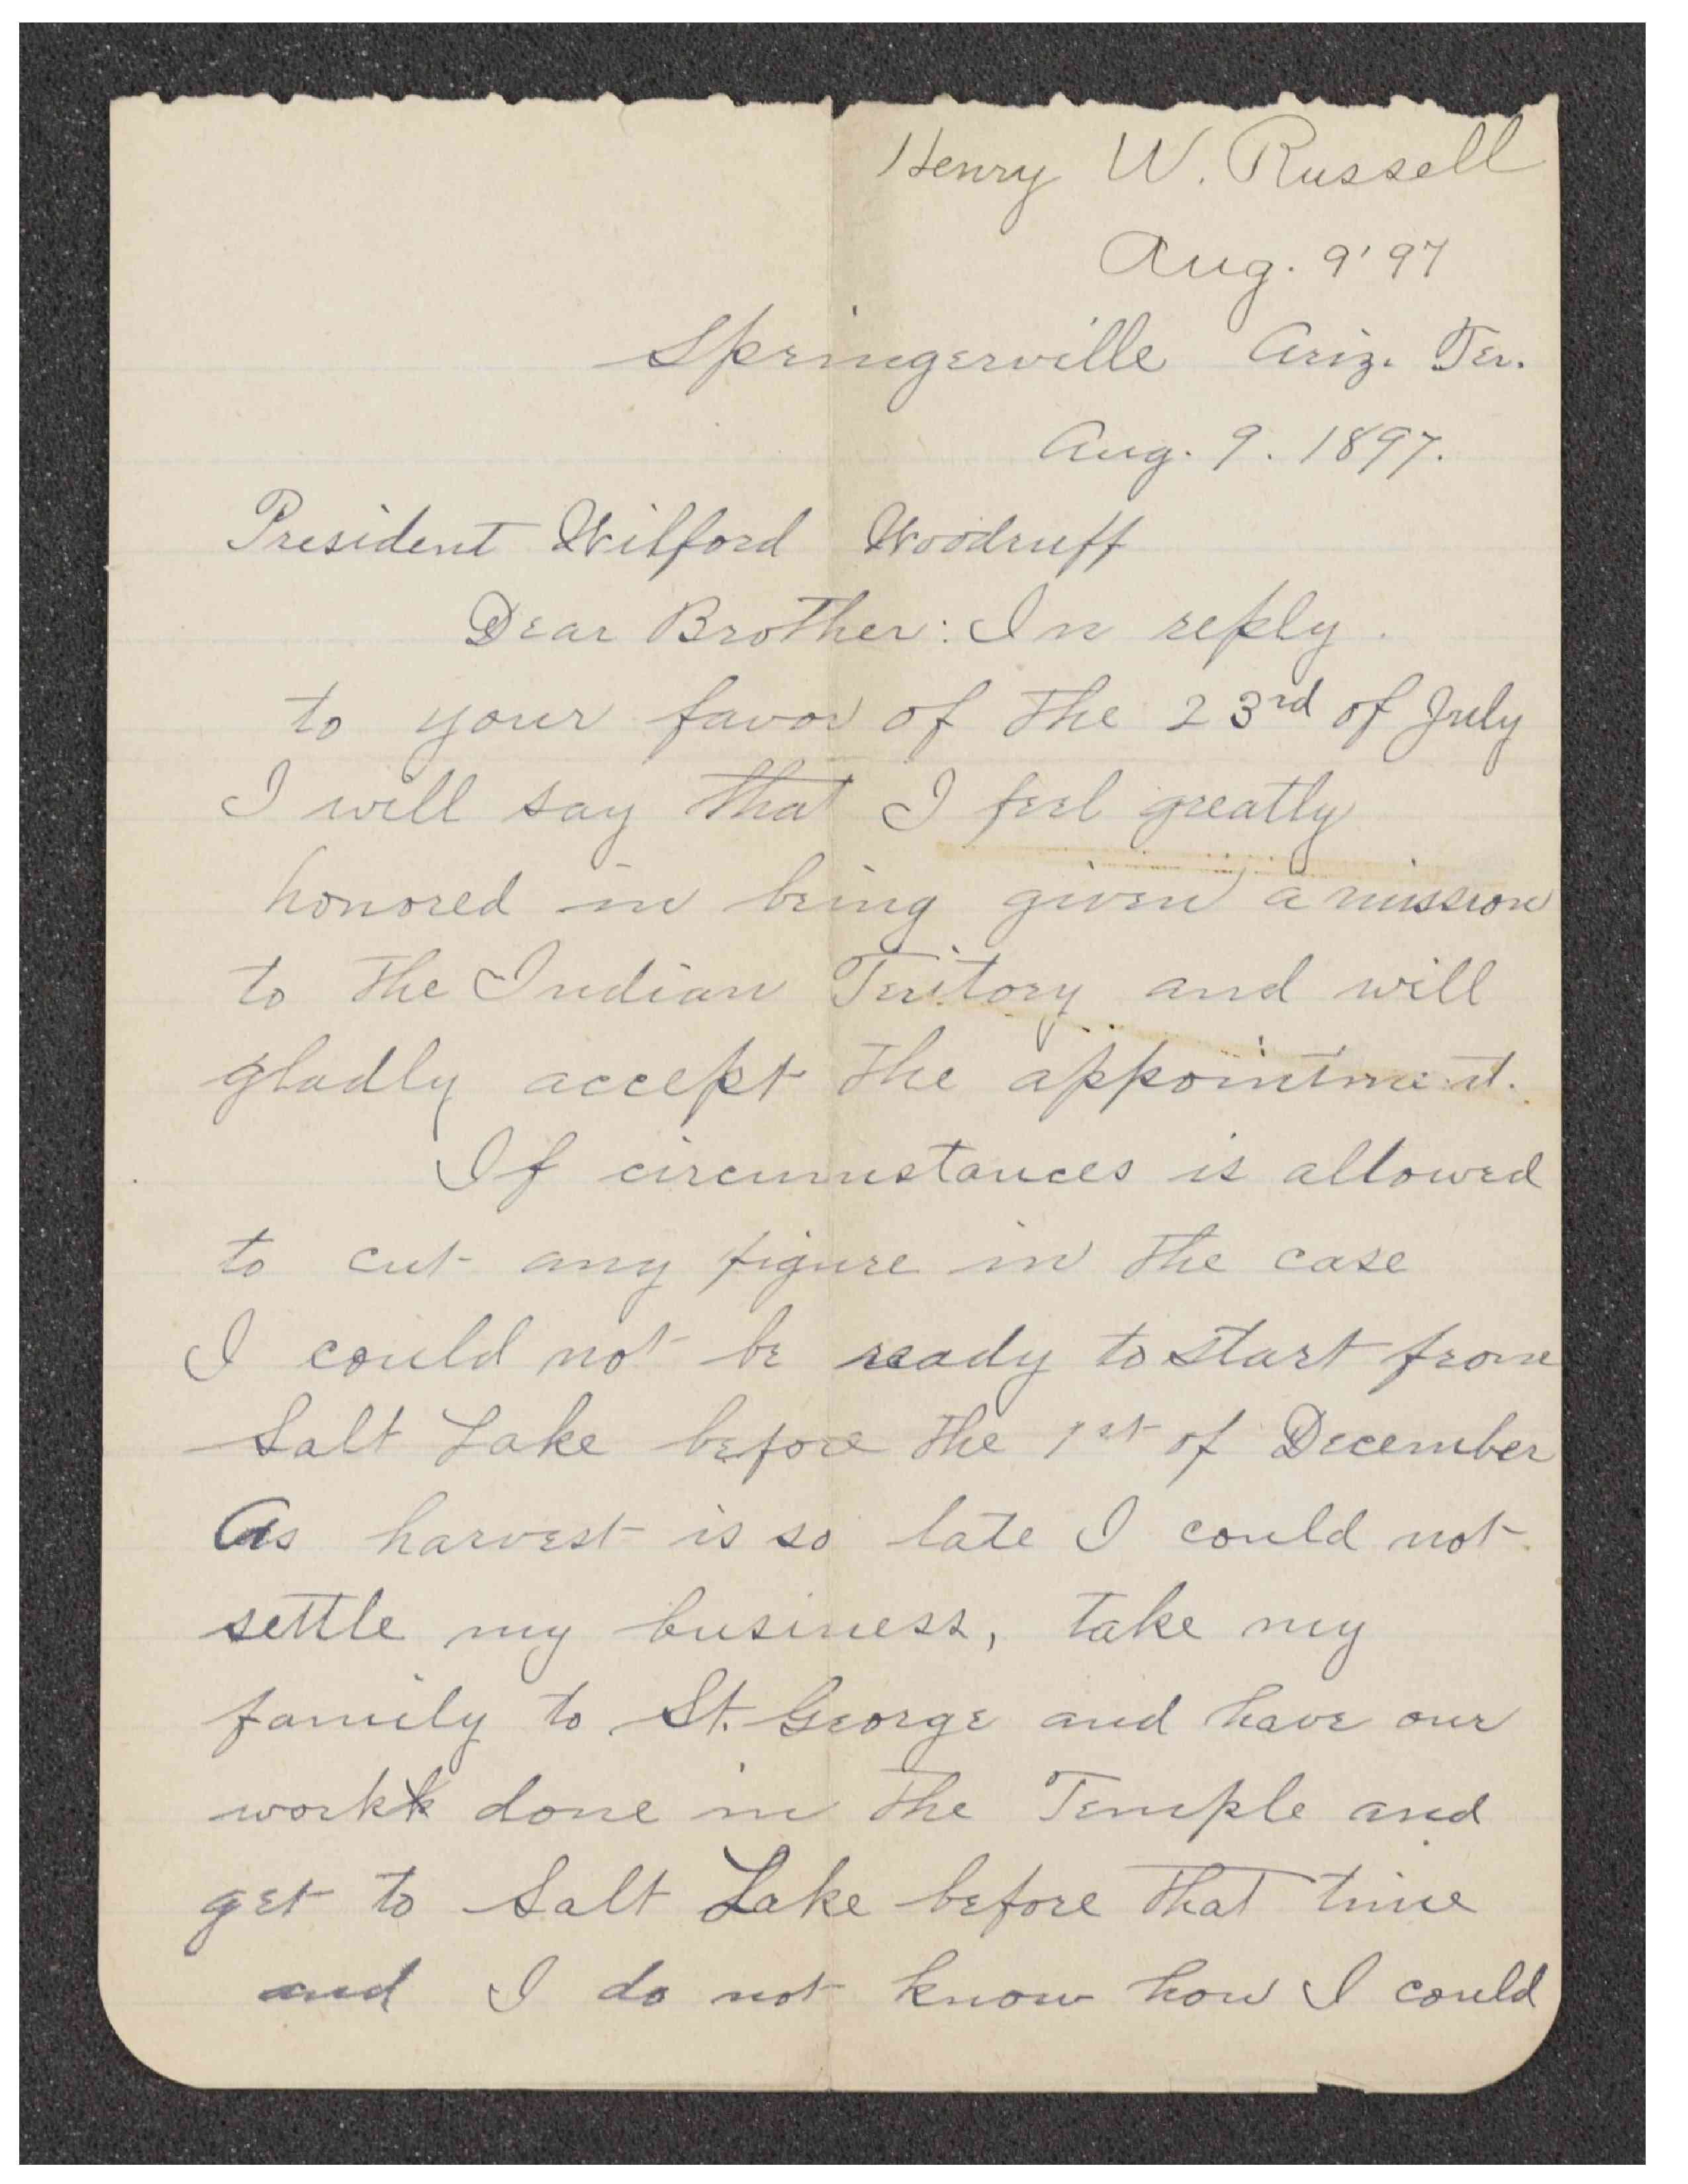 Henry W. Russell
Aug. 9' 97
Springerville Ariz. Ter.
Aug. 9. 1897.
President Wilford Woodruff
Dear Brother: In reply
to your favor of the 23rd of July
I will say that I feel greatly
honored in being given a mission
to the Indian Teritory and will
gladly accept the appointment.
If circumstances is allowed
to cut any figure in the case
I could not be ready to start from
Salt Lake before the 1st of December
As harvest is so late I could not
settle my business, take my
family to St. George and have our
workk done in the Temple and
get to Salt Lake before that time
and I do not know how I could